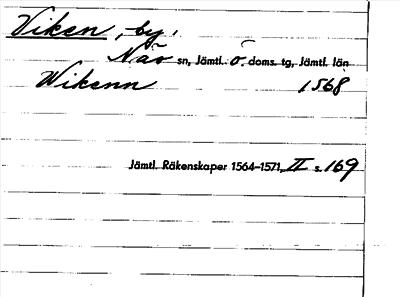 Viken, by,
Näs sn, Jämtl. Ö. doms. tg, Jämtl. län
Wikenn 1568
Jämtl. Räkenskaper 1564-1571, II s. 169